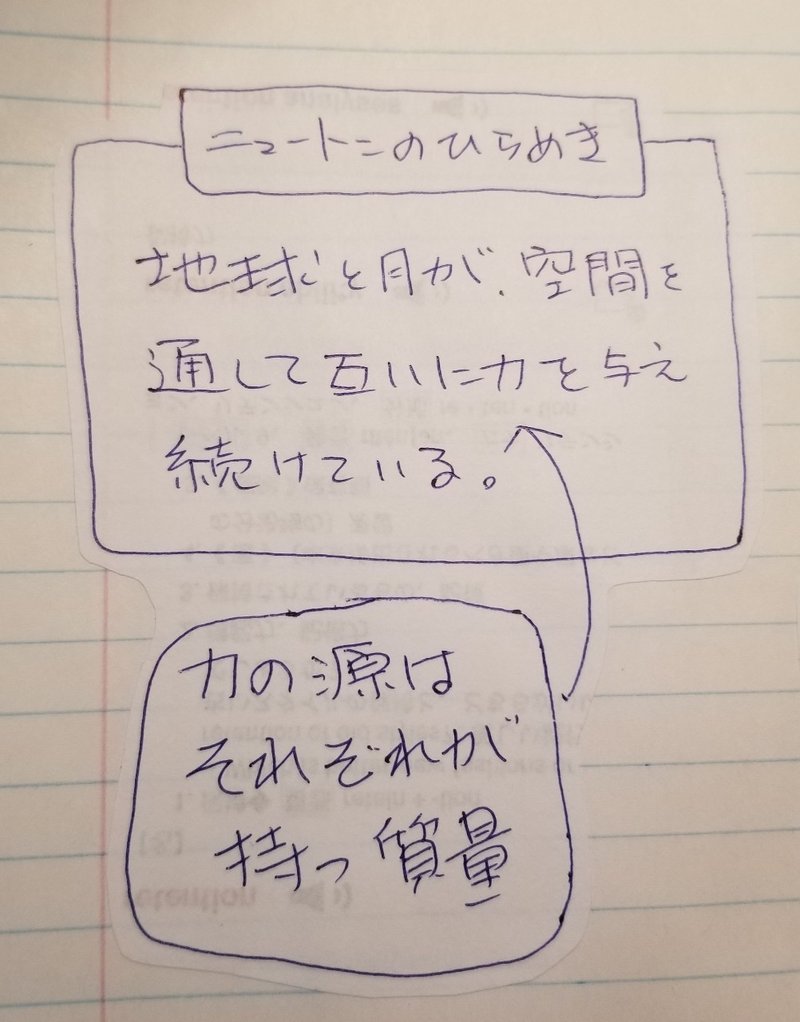 ニュートンのひらめき
地球と月が、空間を
通して互いに力を与え
続けている。
力の源は
それぞれが
持つ質量